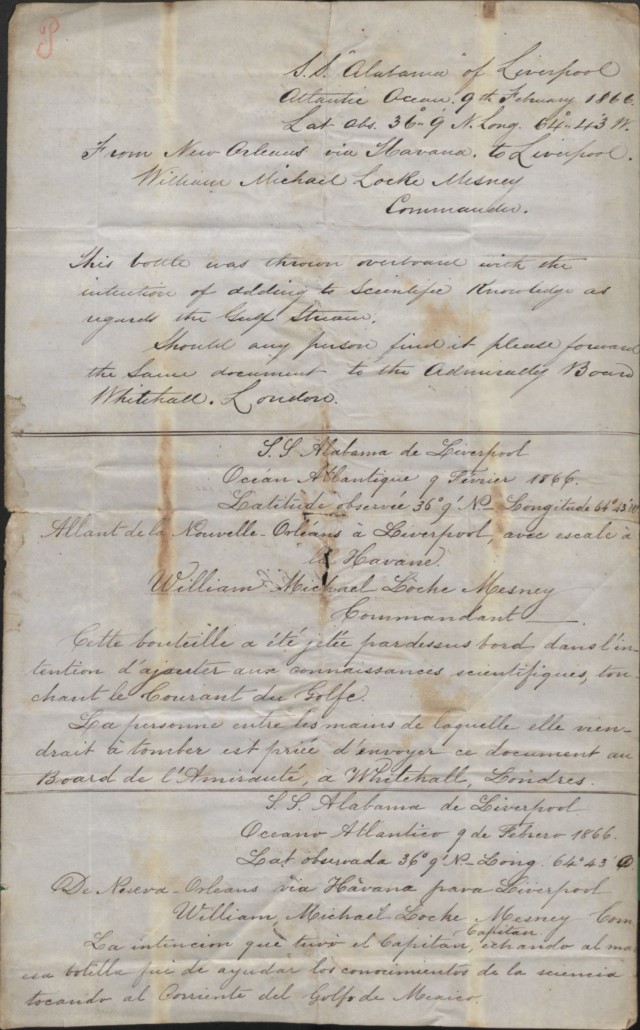 P
S.S. "Alabama" of Liverpool
Atlantic Ocean. 9th February 1866.
Lat obs. 36°-9 N. Long. 64°-43' W.
From New Orleans via Havana. to Liverpool.
William Michael Locke Mesney
Commander.
This bottle was thrown overboard with the
intention of adding to Scientific Knowledge as
regards the Gulf Stream.
Should any person find it please forward
the same document to the Admiralty Board
Whitehall. London.
S.S Alabama de Liverpool
Océan Atlantique 9 Février 1866.
Latitude observée 36° 9' N- Longitude 64° 43' W
Allant de la Nouvelle-Orléans à Liverpool, avec escale à
la Havane.
William Michael Locke Mesney
Commandant
Cette bouteille a été jetée pardessus bord dans l'in-
tention d'ajouter aux connaissances scientifiques, tou-
chant le Courant du Golfe.
La personne entre les mains de laquelle elle vien-
drait à tomber est priée d'envoyer ce document au
Board de l'Amirauté, à Whitehall, Londres.
S.S. Alabama de Liverpool
Oceano Atlantico 9 de Febrero 1866.
Lat observada 36° 9' N- Long. 64° 43' O
De Nueva-Orleans via Hàvana para Liverpool
William, Michael Locke Mesney Com
Capitan
La intencion que tuvó el Capitan, echando al ma
esa botella fué de ayudar los conocimientos de la sciencia
tocando al Corriente del Golfo de Mexico.